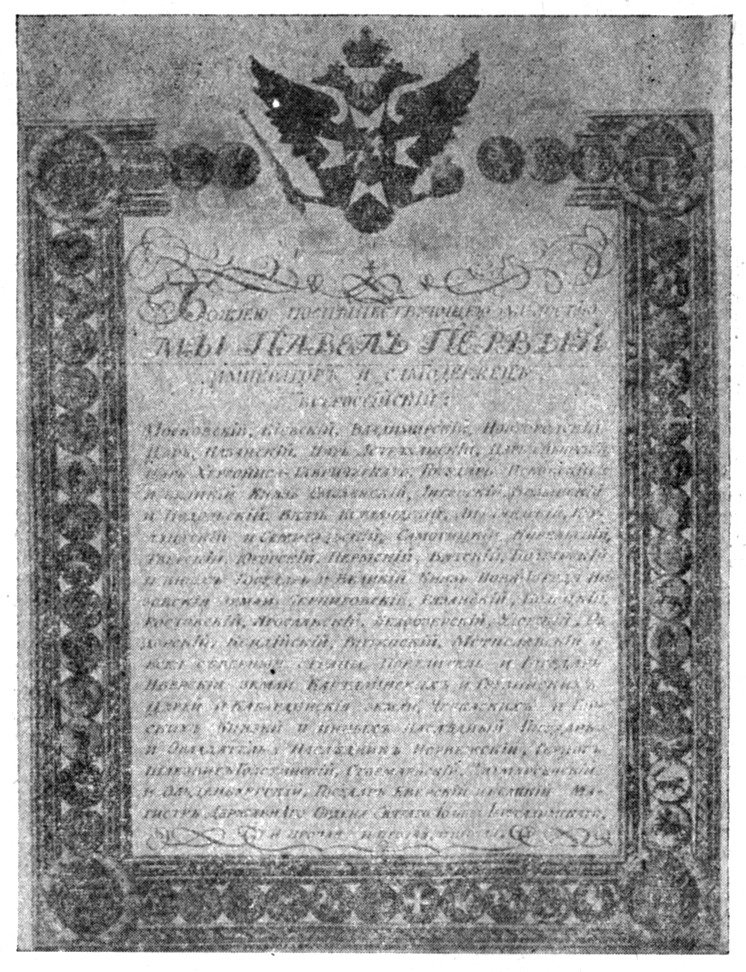 Божіею поспѣшествующею милостію
МЫ ПАВЕЛЪ ПЕРВЫЙ
ИМПЕРАТОРЪ И САМОДЕРЖЕЦЪ
ВСЕРОССІЙСКІЙ:
Московскій, Кіевскій, Владимирскій, Новгородскій,
Царь Казанскій, Царь Астраханскій, Царь
Царь Херсониса-Таврическаго, Государь Псковскій
и Великій Князь Смоленскій, Литовскій, Волынскій
и Подольскій, Князь Естляндскій,
и Семигальскій, Самогицкій, Корельскій,
Тверскій, Югорскій, Пермскій, Вятскій, Болгарскій
и иныхъ Государь и Великій Князь Нова города
земли, Черниговскій, Рязанскій, Полоцкій,
Ростовскій, Ярославскій, Белоозерскій, Удорскій,
Кондійскій, Витепскій, Мстиславскій и
всея северныя страны Повелитель и Государь
Иверскія земли Карталинскихъ и Грузинскихъ
Царей и Кабардинскія земли, Черкаскихъ и
Князей и иныхъ Наследный Государь
и Обладатель Наследникъ Норвежскій,
Голстинскій, Стормарнскій, Дитмарсенскій
и Олденбургскій, Государь Еверскій и Великій Ма-
гистръ Державнаго Ордена Святаго Іоанна Іерусалимскаго,
и прочая, и прочая, и прочая.